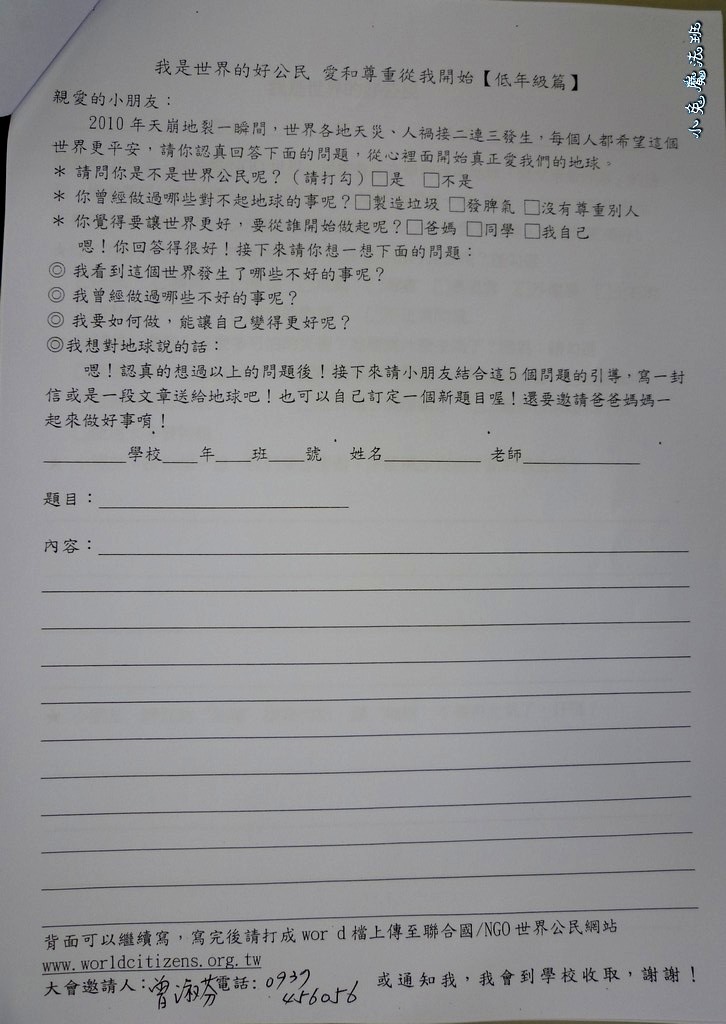 小兔魔法班
我是世界的好公民 愛和尊重從我開始【低年級篇】
親愛的小朋友：
2010年天崩地裂一瞬間，世界各地天災、人禍接二連三發生，每個人都希望這個
世界更平安，請你認真回答下面的問題，從心裡面開始真正愛我們的地球。
* 請問你是不是世界公民呢？（請打勾）□是 □不是
* 你曾經做過哪些對不起地球的事呢？□製造垃圾 □發脾氣 □沒有尊重別人
* 你覺得要讓世界更好，要從誰開始做起呢？□爸媽 □同學 □我自己
嗯！你回答得很好！接下來請你想一想下面的問題：
◎ 我看到這個世界發生了哪些不好的事呢？
◎ 我曾經做過哪些不好的事呢？
◎ 我要如何做，能讓自己變得更好呢？
◎我想對地球說的話：
嗯！認真的想過以上的問題後！接下來請小朋友結合這5個問題的引導，寫一封
信或是一段文章送給地球吧！也可以自己訂定一個新題目喔！還要邀請爸爸媽媽一
起來做好事唷！
________學校____年____班____號 姓名__________ 老師____________
題目：__________________________
內容：__________________________
背面可以繼續寫，寫完後請打成word檔上傳至聯合國/NGO世界公民網站
www.worldcitizens.org.tw
大會邀請人：曾淑芬電話：0937 456056 或通知我，我會到學校收取，謝謝！